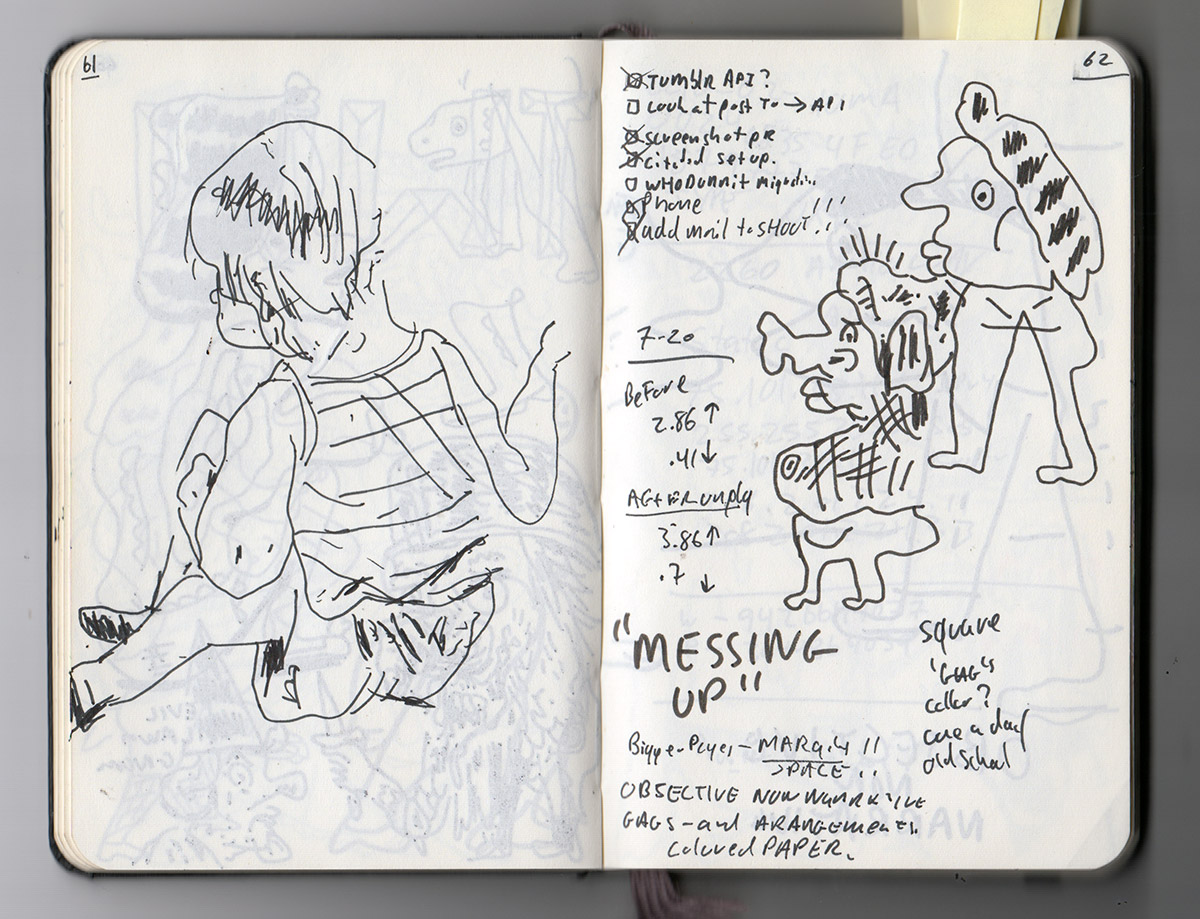 61
62
Tumblr API?
Look at post to → API
screenshot pr
setup.
WHODUNNIT
Phone !!!
add mail to SHOUT!!
7-20
Before
2.86 ↑
.41 ↓
AFTER unplug
3.86 ↑
.7 ↓
"MESSING
UP"
square
'GAG's
color?
one a day
old school
Bigger Pages - MARGINS !!
SPACE !!
OBJECTIVE NONNARRATIVE
GAGS - and ARANGEMENTS.
colored PAPER.